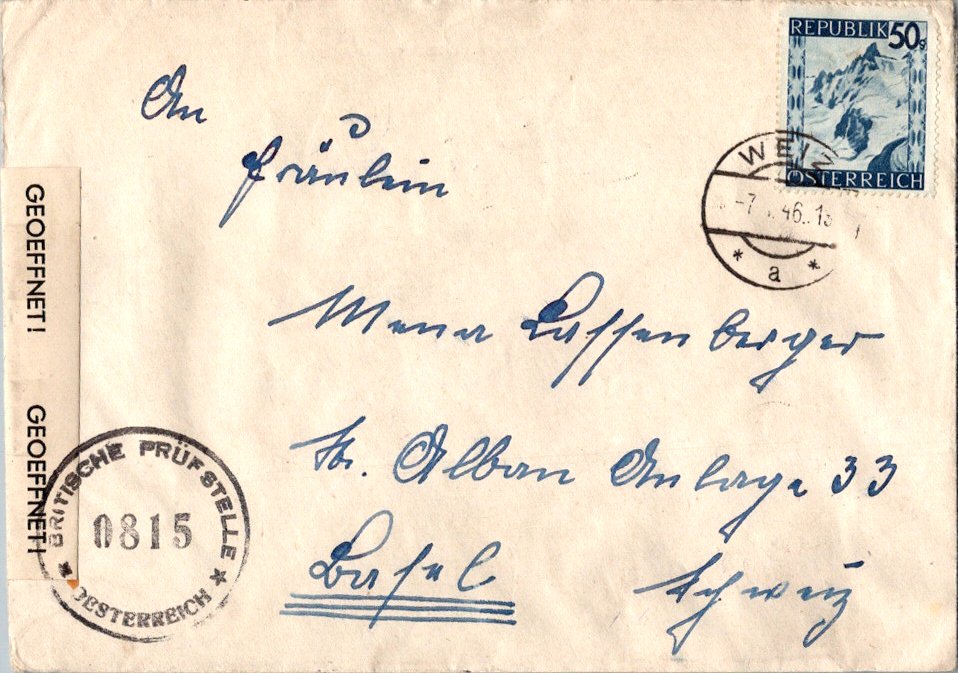 REPUBLIK 50g
ÖSTERREICH
WEIZ
-7. .46.13
* a *
An
Fräulein
Mena Lassenberger
St. Alban Anlage 33
Basel Schweiz
GEOEFFNET!
GEOEFFNET!
BRITISCHE PRÜFSTELLE
0815
OESTERREICH